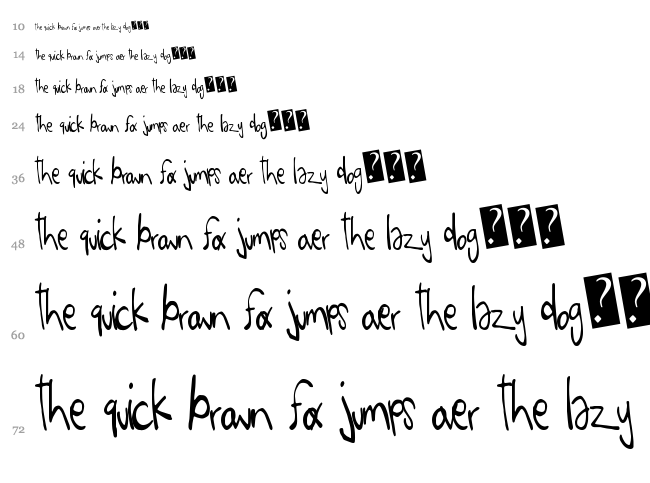 10 the quick brown fox jumps over the lazy dog???
14 the quick brown fox jumps over the lazy dog???
18 the quick brown fox jumps over the lazy dog???
24 the quick brown fox jumps over the lazy dog???
36 the quick brown fox jumps over the lazy dog???
48 the quick brown fox jumps over the lazy dog???
60 the quick brown fox jumps over the lazy dog??
72 the quick brown fox jumps over the lazy